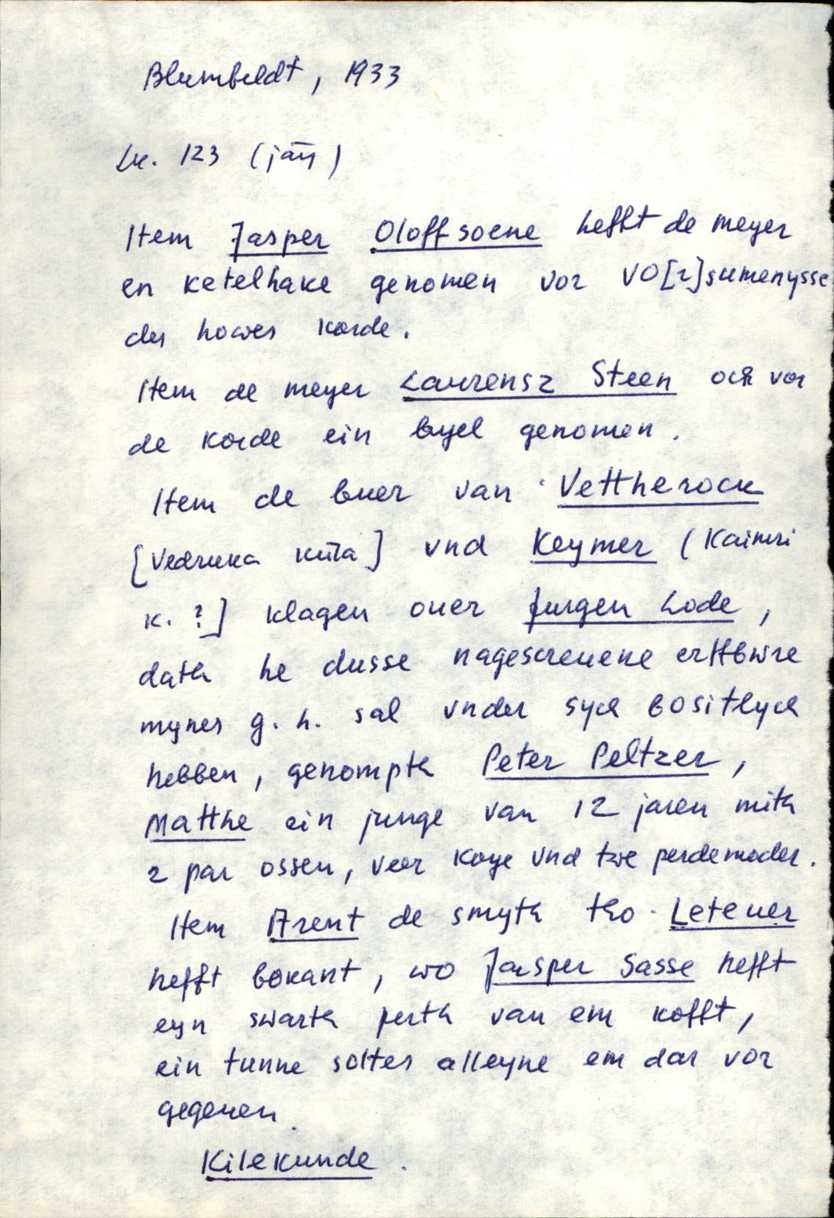 Blumbeldt, 1933
Lk. 123 (järg)
Item Jasper Oloffsoene hefft de meyer
en ketelhake genomen vor vo[r]sumenysse
des howes korde.
Item de meyer Laurensz Steen ock vor
de korde ein byel genomen.
Item de buer van Vettherock
[Vedruka küla] vnd Keymer (Kaimri
k. ?] klagen ouer Jurgen Lode,
dath he dusse nagescreuene erffbwre
mynes g. h. sal vnder syck bositlyck
hebben, genompth Peter Peltzer,
Matthe ein junge van 12 jaren mith
2 par ossen, veer koye vnd twe perdemoder.
Item Arent de smyth tho Leteuer
hefft bokant, wo Jasper Sasse hefft
eyn swarth perth van em kofft,
ein tunne soltes alleyne em dar vor
gegeuen.
Kilekunde.